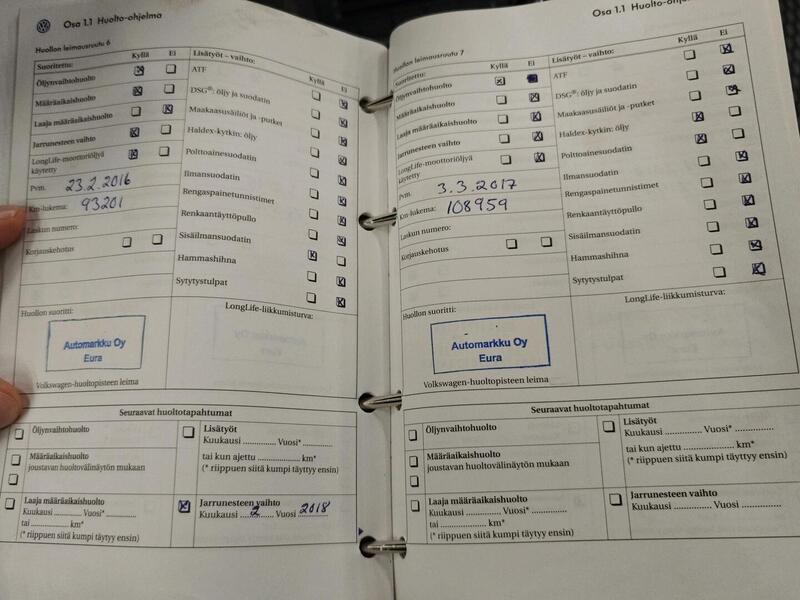 Osa 1.1 Huolto-ohjelma
Huollon leimausruutu 6
Suoritettu: Kyllä Ei
Öljynvaihtohuolto
Määräaikaishuolto
Laaja määräaikaishuolto
Jarrunesteen vaihto
LongLife-moottoriöljyä
käytetty
Pvm. 23.2.2016
Km-lukema: 93201
Laskun numero:
Korjauskehotus
Lisätyöt – vaihto: Kyllä Ei
ATF
DSG®: öljy ja suodatin
Maakaasusäiliöt ja -putket
Haldex-kytkin: öljy
Polttoainesuodatin
Ilmansuodatin
Rengaspainetunnistimet
Renkaantäyttöpullo
Sisäilmansuodatin
Hammashihna
Sytytystulpat
Huollon suoritti:
LongLife-liikkumisturva:
Automarkku Oy
Eura
Volkswagen-huoltopisteen leima
Seuraavat huoltotapahtumat
Öljynvaihtohuolto
Määräaikaishuolto
joustavan huoltovälinäytön mukaan
Laaja määräaikaishuolto
Kuukausi .......... Vuosi* ..........
tai .................... km*
(* riippuen siitä kumpi täyttyy ensin)
Lisätyöt
Kuukausi .............. Vuosi* .............
tai kun ajettu .................... km*
(* riippuen siitä kumpi täyttyy ensin)
Jarrunesteen vaihto
Kuukausi ....2..... Vuosi 2018
Osa 1.1
Huollon leimausruutu 7
Suoritettu: Kyllä Ei
Öljynvaihtohuolto
Määräaikaishuolto
Laaja määräaikaishuolto
Jarrunesteen vaihto
LongLife-moottoriöljyä
käytetty
Pvm. 3.3.2017
Km-lukema: 108959
Laskun numero:
Korjauskehotus
Lisätyöt – vaihto: Kyllä Ei
ATF
DSG®: öljy ja suodatin
Maakaasusäiliöt ja -putket
Haldex-kytkin: öljy
Polttoainesuodatin
Ilmansuodatin
Rengaspainetunnistimet
Renkaantäyttöpullo
Sisäilmansuodatin
Hammashihna
Sytytystulpat
Huollon suoritti:
LongLife-liikkumisturva:
Automarkku Oy
Eura
Volkswagen-huoltopisteen leima
Seuraavat huoltotapahtumat
Öljynvaihtohuolto
Määräaikaishuolto
joustavan huoltovälinäytön mukaan
Laaja määräaikaishuolto
Kuukausi .......... Vuosi* ..........
tai .................... km*
(* riippuen siitä kumpi täyttyy ensin)
Lisätyöt
Kuukausi .............. Vuosi* .............
tai kun ajettu .................... km*
(* riippuen siitä kumpi täyttyy ensin)
Jarrunesteen vaihto
Kuukausi .............. Vuosi ..............